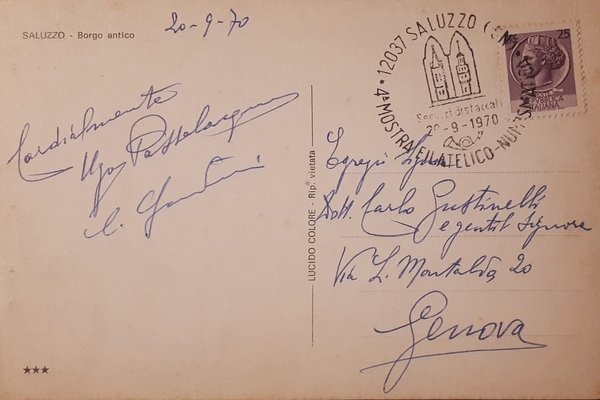 SALUZZO - Borgo antico
20-9-70
Cordialmente
Ugo
12037 SALUZZO (CN) * 4ª MOSTRA FILATELICO-NUMISMATICA *
Servizi distaccati
20-9-1970
25
REPUBBLICA
ITALIANA
LUCIDO COLORE - Rip. vietata
Egregi Signori
Dott. Carlo Gustinelli
e gentil Signora
Via L. Montaldo 20
Genova